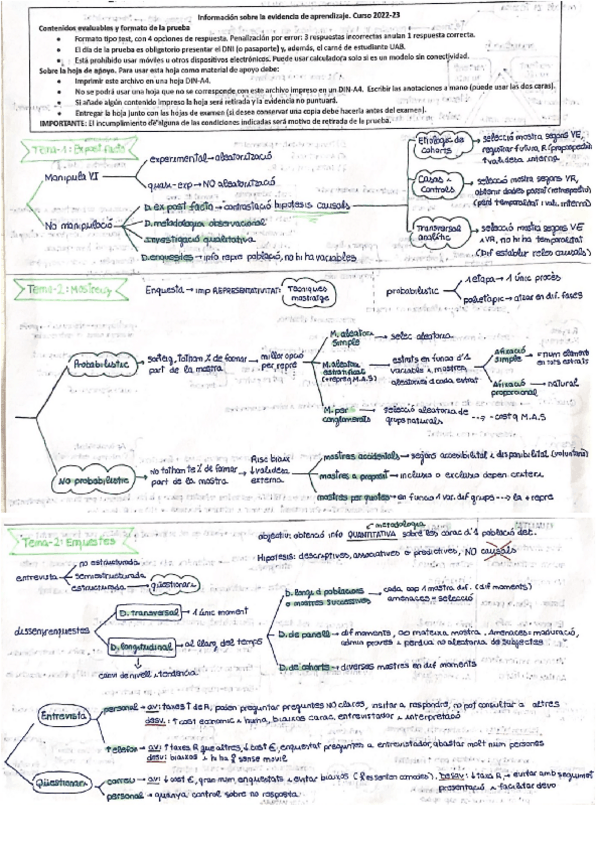 Información sobre la evidencia de aprendizaje. Curso 2022-23
Contenidos evaluables y formato de la prueba
• Formato tipo test, con 4 opciones de respuesta. Penalización por error: 3 respuestas incorrectas anulan 1 respuesta correcta.
• El día de la prueba es obligatorio presentar el DNI (o pasaporte) y, además, el carné de estudiante UAB.
• Está prohibido usar móviles u otros dispositivos electrónicos. Puede usar calculadora solo si es un modelo sin conectividad.
Sobre la hoja de apoyo. Para usar esta hoja como material de apoyo debe:
• Imprimir este archivo en una hoja DIN-A4.
• No se podrá usar una hoja que no se corresponde con este archivo impreso en un DIN-A4. Escribir las anotaciones a mano (puede usar las dos caras).
• Si añade algún contenido impreso la hoja será retirada y la evidencia no puntuará.
• Entregar la hoja junto con las hojas de examen (si desea conservar una copia debe hacerla antes del examen).
IMPORTANTE: El incumplimiento de alguna de las condiciones indicadas será motivo de retirada de la prueba.
Tema-1: Ex post facto
Manipula VI
experimental → aleatorització
quasi-exp → NO aleatorització
No manipulació
D. ex post facto → contrastació hipotesis causals
D. metodologia observacional
Investigació qualitativa
D. enquestes → info repre població, no hi ha variables
Etiològic de cohorts → selecció mostra segons VE, registrar futura R (prospectiu)
↑validesa interna
Casos i controls → selecció mostra segons VR,
obtenir dades passat (retrospectiu)
(perd temporalitat i val. interna)
Transversal analític → selecció mostra segons VE
+ VR, no hi ha temporalitat
(Dif establir relac causals)
Tema-2: Mostreig
Enquesta → imp REPRESENTATIVITAT: Tècniques mostratge
probabilistic
1 etapa → 1 únic procès
polietàpic → atzar en dif. fases
Probabilistic → sorteig, tothom % de formar part de la mostra → millor opció per repre
M. aleatori simple → selec aleatoria
M. aleatori estratificat (+repre q M.A.S) → estrats en funció d'1 variable i mostreig aleatori a cada estrat
Afixació simple → = num elements en tots estrats
Afixació proporcional → natural
M. per conglomerats → selecció aleatoria de grups naturals → -cost q M.A.S
No probabilistic → no tothom té % de formar part de la mostra → Risc biaix ↓validesa externa
mostres accidentals → segons accesibilitat i disponibilitat (voluntaris)
mostres a proposit → inclusio o exclusio depen criteri
mostres per quotes → en funcio 1 var. dif grups → la + repre
Tema-2: Enquestes
metodologia
objectiu: obtenció info QUANTITATIVA sobre les carac d'1 població det.
Hipotesis: descriptives, associatives o predictives, NO causals
entrevista
no estructurada
semiestructurada
estructurada → qüestionari
disseny enquestes
D. transversal → 1 únic moment
D. longitudinal → al llarg del temps
canvi de nivell i tendència.
D. longi d poblacions o mostres successives → cada cop 1 mostra dif. (dif moments)
amenaces → selecció
D. de panell → dif moments, = mateixa mostra. Amenaces: maduració,
admin proves i perdua no aleatoria de subjectes
D. de cohorts → diverses mostres en dif moments
Entrevista
personal → av: taxes ↑ de R, poden preguntar preguntes NO clares, incitar a respondre, no pot consultar a altres
desv: ↑ cost economic i humà, biaixos carac. entrevistador i interpretació
telefon → av: ↑ taxes R que altres, ↓ cost €, enquestat pregunten a entrevistador, abastar molt num persones
desv: biaixos
Qüestionari
correu → av: ↓ cost €, gran num enquestats i evitar biaixos
Desav: ↓ taxa R → evitar amb seguiment
presentació i facilitar devo
personal → control sobre no resposta